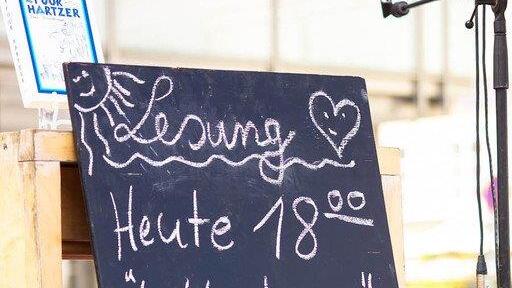 HARTZER
Lesung
Heute 18⁰⁰